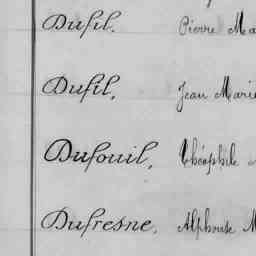 Dufil. Pierre Ma
Dufil, Jean Marie
Dufouil, Théophile
Dufresne, Alphonse M